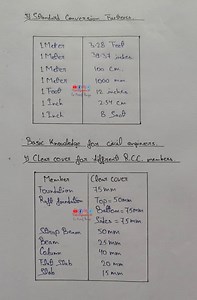 3) Standard Conversion Factors.
1 Meter 3.28 Feet
1 Meter 39.37 inches
1 Meter 100 Cm
1 Meter 1000 mm
1 Foot 12 inches
1 Inch 2.54 Cm
1 Inch 8 Soot
Basic Knowledge for civil engineers.
1) Clear cover for different R.C.C. members.
Member Clear cover
Foundation 75 mm
Raft foundation Top = 50mm
Bottom = 75mm
Sides = 75mm
Strap Beam 50 mm
Beam 25 mm
Column 40 mm
Flat Slab 20 mm
Slab 15 mm